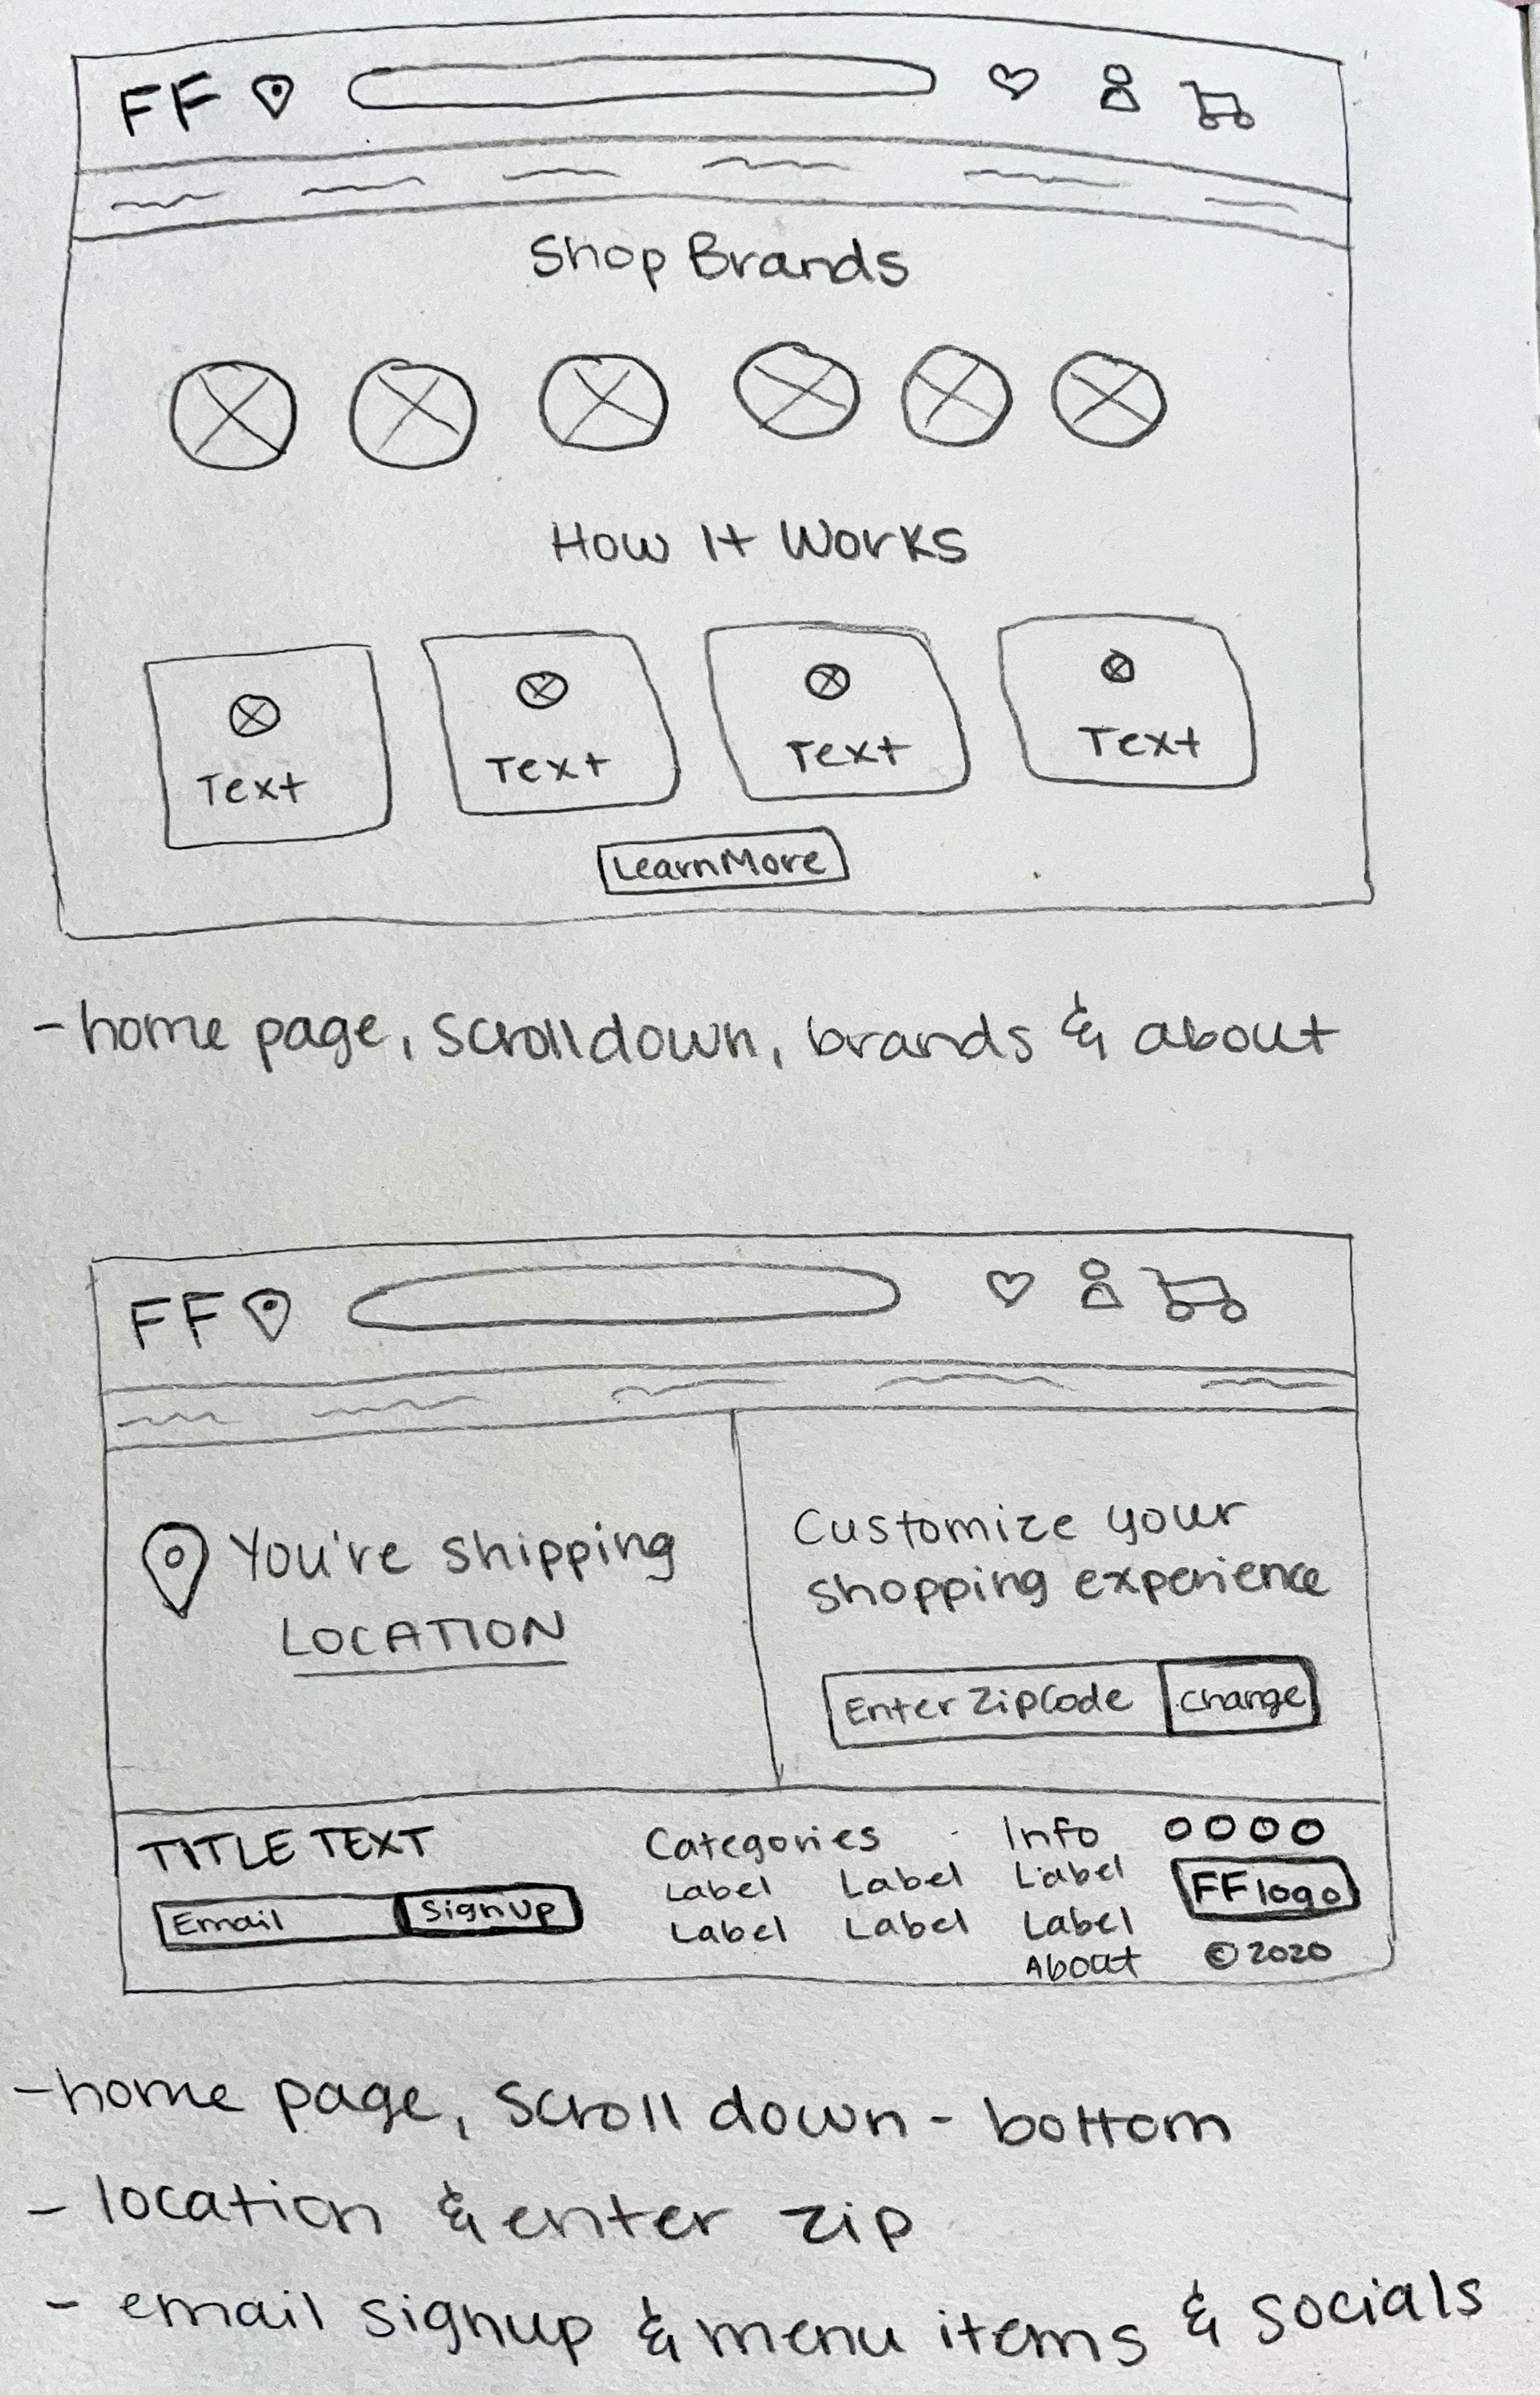 FF
Shop Brands
How It Works
Text Text Text Text
Learn More
- home page, scroll down, brands & about
FF
You're shipping
LOCATION
Customize your
shopping experience
Enter Zip Code Change
TITLE TEXT
Email Sign Up
Categories Info
Label Label Label
Label Label Label
About
FF logo
©2020
- home page, scroll down - bottom
- location & enter zip
- email signup & menu items & socials